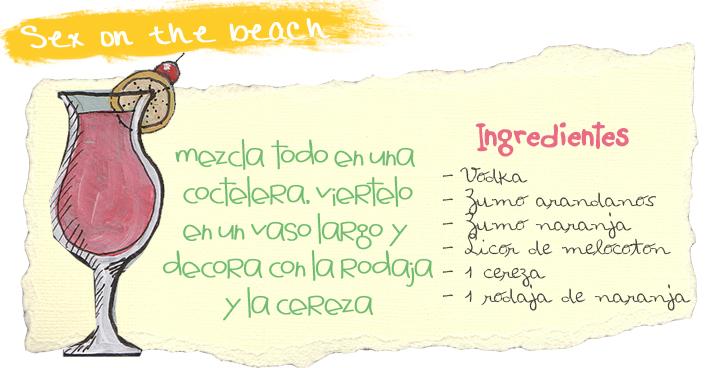 Sex on the beach
mezcla todo en una
coctelera. viertelo
en un vaso largo y
decora con la rodaja
y la cereza
Ingredientes
- Vodka
- Zumo arandanos
- Zumo naranja
- Licor de melocoton
- 1 cereza
- 1 rodaja de naranja